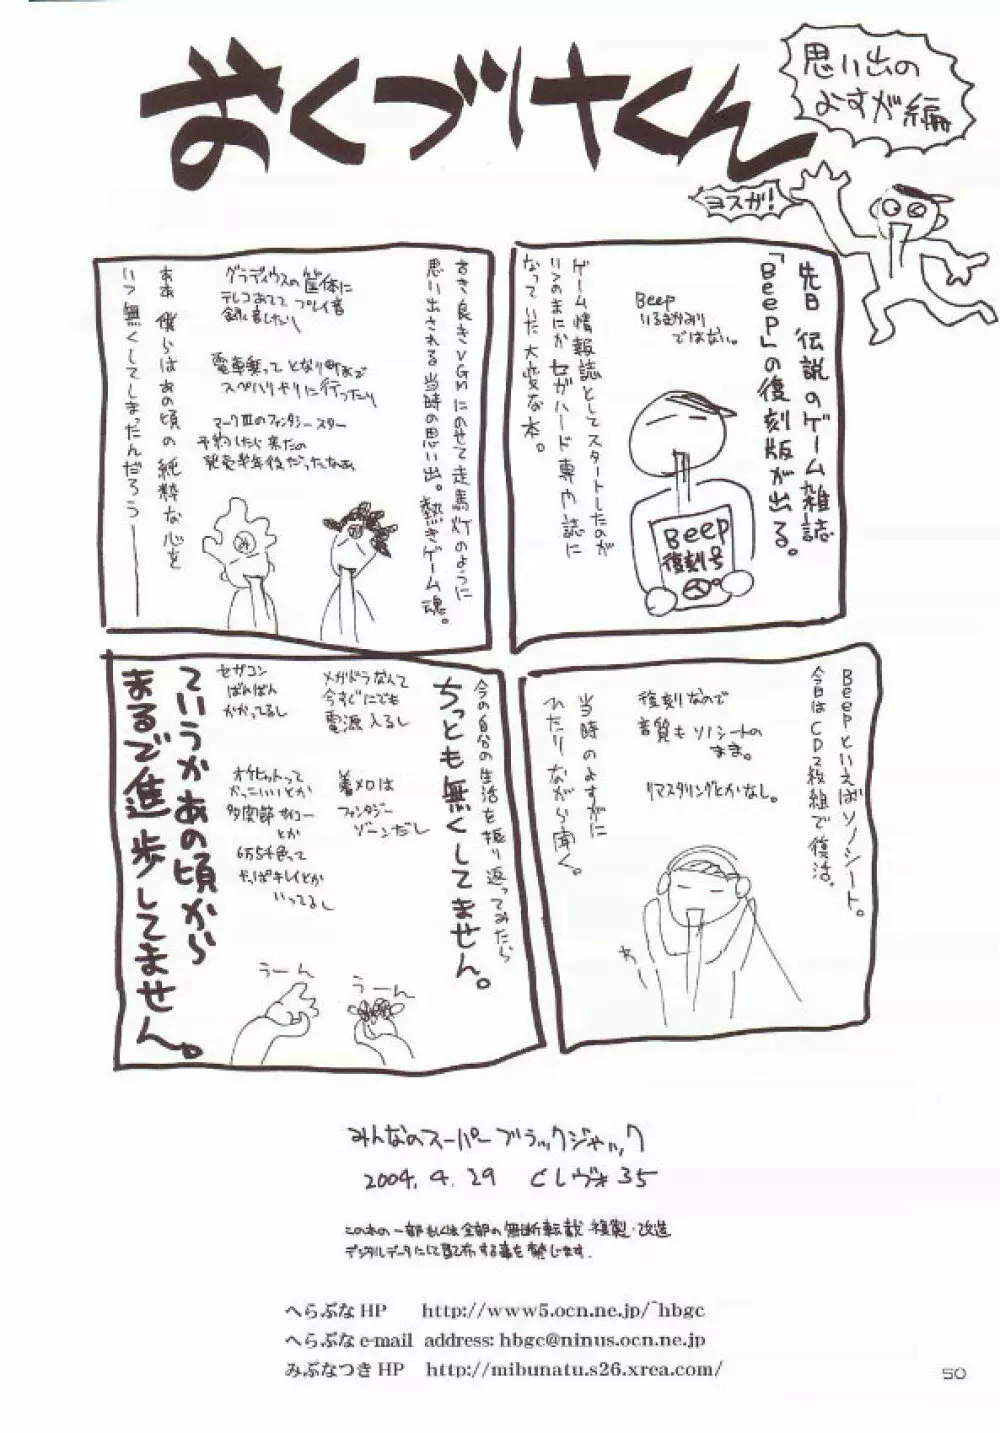 おくづけくん
思い出の
よすが編
ヨスガ！
先日、伝説のゲーム雑誌
「Beep」の復刻版が出る。
Beep
いるきかみり
ではない。
ゲーム情報誌としてスタートしたのが
いつのまにかセガハード専門誌に
なっていた大変な本。
Beep
復刻号
古き良きVGMにのせて走馬灯のように
思い出される当時の思い出。熱きゲーム魂。
グラディウスの筐体に
テレコあてて プレイ音
録音したり
電車乗って となり町まで
スペハリやりに行ったり
マークⅢのファンタシースター
予約したら来たの
発売半年後だったなぁ
ああ 僕らはあの頃の純粋な心を
いつ無くしてしまったんだろう―――
Beepといえばソノシート。
今日はCD2枚組で復活。
復刻なので
音質もソノシートの
まま。
リマスタリングとかなし。
当時のよすがに
ひたりながら聞く。
今の自分の生活を振り返ってみたら
ちっとも無くしてません。
メガドラなんて
今すぐにでも
電源入るし
セガコン
ばんばん
かかってるし
着メロは
ファンタジー
ゾーンだし
オケヒットって
かっこいいとか
多関節サイコー
とか
6万5千色って
やっぱキレイとか
いってるし
うーん
うーん
ていうかあの頃から
まるで進歩してません。
みんなのスーパーブラックジャック
2004.4.29 Cレヴォ35
この本の一部もしくは全部の無断転載・複製・改造
デジタルデータにして配布する事を禁じます.
へらぶなHP http://www5.ocn.ne.jp/~hbgc
へらぶなe-mail address: hbgc@ninus.ocn.ne.jp
みぶなつきHP http://mibunatu.s26.xrea.com/
50